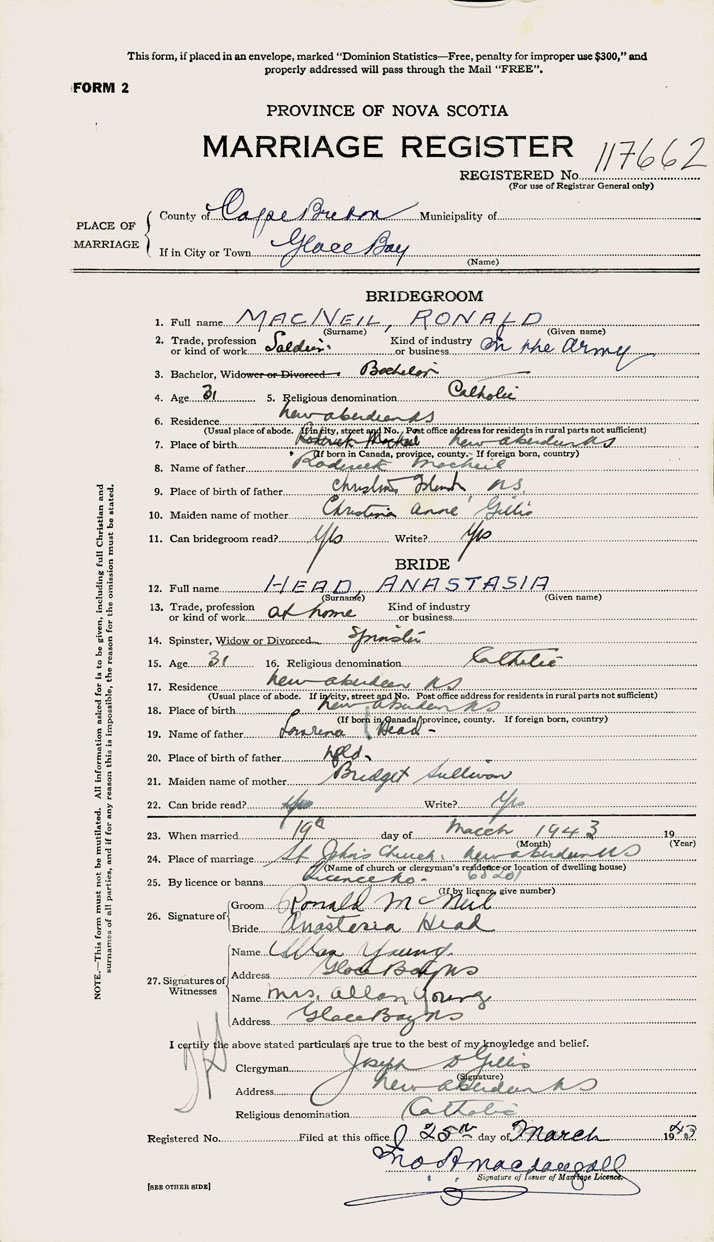 This form, if placed in an envelope, marked "Dominion Statistics—Free, penalty for improper use $300," and
properly addressed will pass through the Mail "FREE".
FORM 2
PROVINCE OF NOVA SCOTIA
MARRIAGE REGISTER 117662
REGISTERED No.
(For use of Registrar General only)
PLACE OF MARRIAGE
County of Cape Breton Municipality of
If in City or Town Glace Bay
(Name)
BRIDEGROOM
1. Full name MACNEIL, RONALD
(Surname) (Given name)
2. Trade, profession or kind of work Soldier. Kind of industry or business in the Army
3. Bachelor, Widower or Divorced Bachelor
4. Age 31 5. Religious denomination Catholic
6. Residence New Aberdeen NS
(Usual place of abode. If in city, street and No. Post office address for residents in rural parts not sufficient)
7. Place of birth New Aberdeen NS
(If born in Canada, province, county. If foreign born, country)
8. Name of father Roderick MacNeil
9. Place of birth of father Christmas Island NS.
10. Maiden name of mother Christina Anne Gillis
11. Can bridegroom read? Yes Write? Yes
BRIDE
12. Full name HEAD, ANASTASIA
(Surname) (Given name)
13. Trade, profession or kind of work at home Kind of industry or business
14. Spinster, Widow or Divorced Spinster
15. Age 31 16. Religious denomination Catholic
17. Residence New Aberdeen NS
(Usual place of abode. If in city, street and No. Post office address for residents in rural parts not sufficient)
18. Place of birth New Aberdeen NS
(If born in Canada, province, county. If foreign born, country)
19. Name of father Head -
20. Place of birth of father Nfld.
21. Maiden name of mother Bridget Sullivan
22. Can bride read? Yes Write? Yes
23. When married 19th day of March 1943 19
(Month) (Year)
24. Place of marriage St John's Church. New Aberdeen NS
(Name of church or clergyman's residence or location of dwelling house)
25. By licence or banns Licence No. 68201
(If by licence, give number)
26. Signature of
Groom Ronald McNeil
Bride Anastasia Head
27. Signatures of Witnesses
Name Allan Young
Address Glace Bay NS
Name Mrs. Allan Young
Address Glace Bay NS
I certify the above stated particulars are true to the best of my knowledge and belief.
Clergyman Joseph D Gillis
(Signature)
Address New Aberdeen NS
Religious denomination Catholic
Registered No. Filed at this office 25th day of March 1943
Jno A MacDougall
Signature of Issuer of Marriage Licence.
[SEE OTHER SIDE]
NOTE.—This form must not be mutilated. All information asked for is to be given, including full Christian and
surnames of all parties, and if for any reason this is impossible, the reason for the omission must be stated.